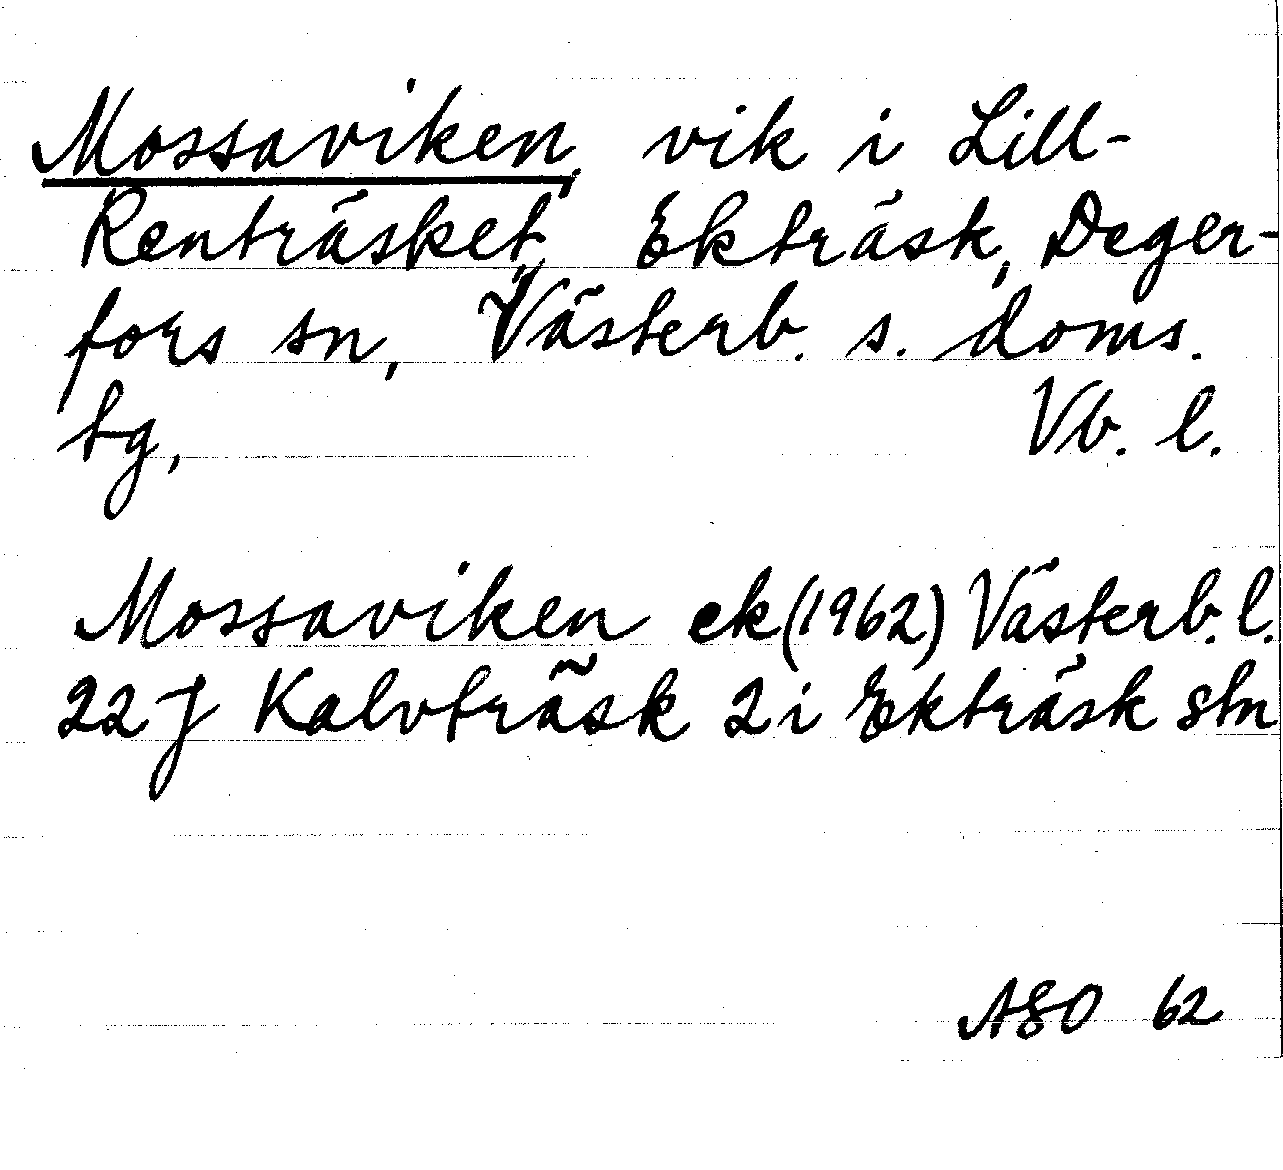 Mossaviken, vik i Lill-
Renträsket, Ekträsk, Deger-
fors sn, Västerb. s. doms.
tg, Vb. l.
Mossaviken ek(1962) Västerb. l.
22J Kalvträsk 2 i Ekträsk stn
ASO 62